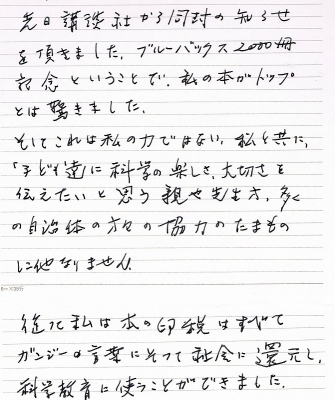 先日講談社から同封の知らせ
を頂きました。ブルーバックス2000冊
記念ということで、私の本がトップ
とは驚きました。
そしてこれは私の力ではない、私と共に、
「子ども達に科学の楽しさ、大切さを
伝えたいと思う親や先生方、多く
の自治体の方々の協力のたまもの
に他なりません。
従って私は本の印税はすべて
ガンジーの言葉にそって社会に還元し、
科学教育に使うことができました。